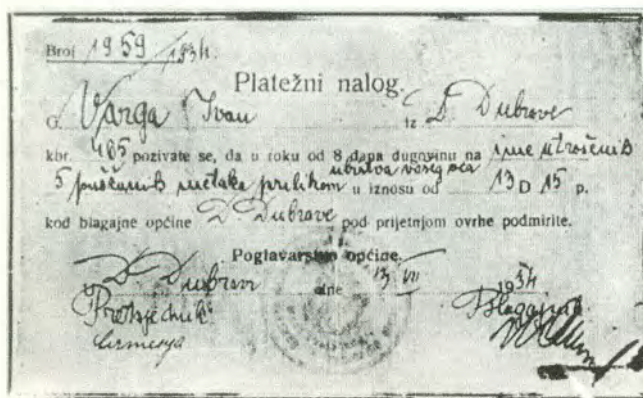 Broj 1959/1934.
Platežni nalog.
G. Varga Ivan iz D. Dubrave
kbr. 485 pozivate se, da u roku od 8 dana dugovinu na ime utrošenih
5 puščanih metaka prilikom ubistva vašeg oca u iznosu od 13 D 15 p.
kod blagajne općine D. Dubrave pod prijetnjom ovrhe podmirite.
Poglavarstvo općine.
D. Dubrava dne 13/VII 1934
Predsjednik: Blagajnik